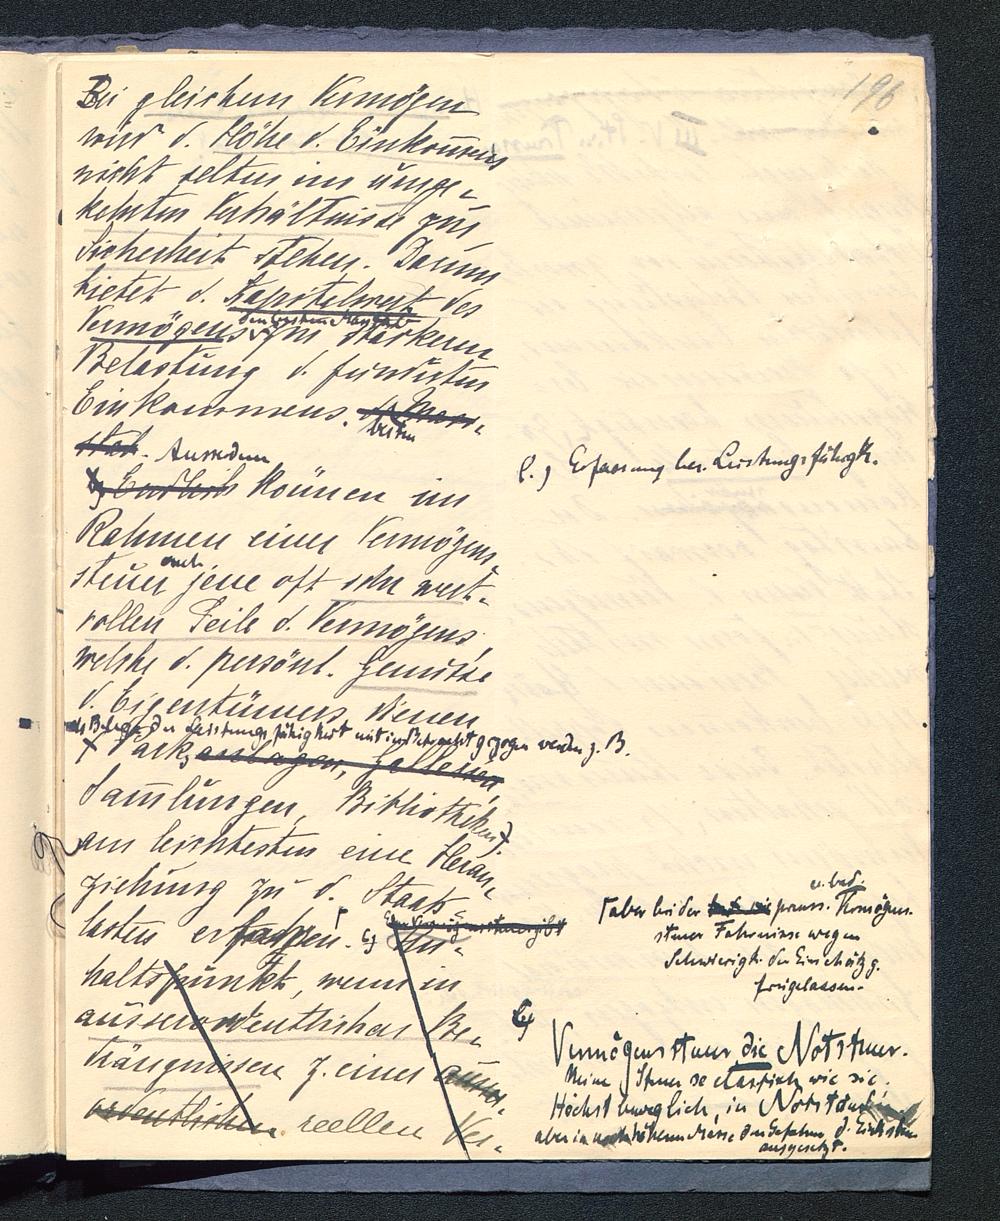 196
Bei gleichem Vermögen
wird d. Höhe d. Einkommens
nicht selten im umge-
kehrten Verhältnisse zur
Sicherheit stehen. Darum
bietet d. Kapitalwert des
den besten Massstab
Vermögens zur stärkeren
Belastung d. fundirten
Einkommens.
besten
Ausserdem
b) Endlich können im
Rahmen einer Vermögens-
auch
steuer jene oft sehr wert-
vollen Teile d. Vermögens
welche d. persönl. Genusse
d. Eigentümers dienen
als Belege der Leistungsfähigkeit mit in Betracht gezogen werden z. B.
Park,
Sammlungen, Bibliotheken
am leichtesten eine Heran-
ziehung zu d. Staats-
lasten erfahren. c)
Eine Vermögenssteuer gibt
haltspunkt, wenn in
ausserordentlichen Be-
drängnissen z. einer ausser-
ordentlichen reellen Ver-
b.) Erfassung bes. Leistungsfähigk.
u. bad.
aber bei der preuss. Vermögens-
steuer Fahrnisse wegen
Schwierigk. der Einschätzg.
freigelassen.
c)
Vermögenssteuer die Notsteuer.
Keine Steuer so elastisch wie sie.
Höchst beweglich, in Notstand
aber in noch höherem Masse den Gefahren d. Einksteu
ausgesetzt.